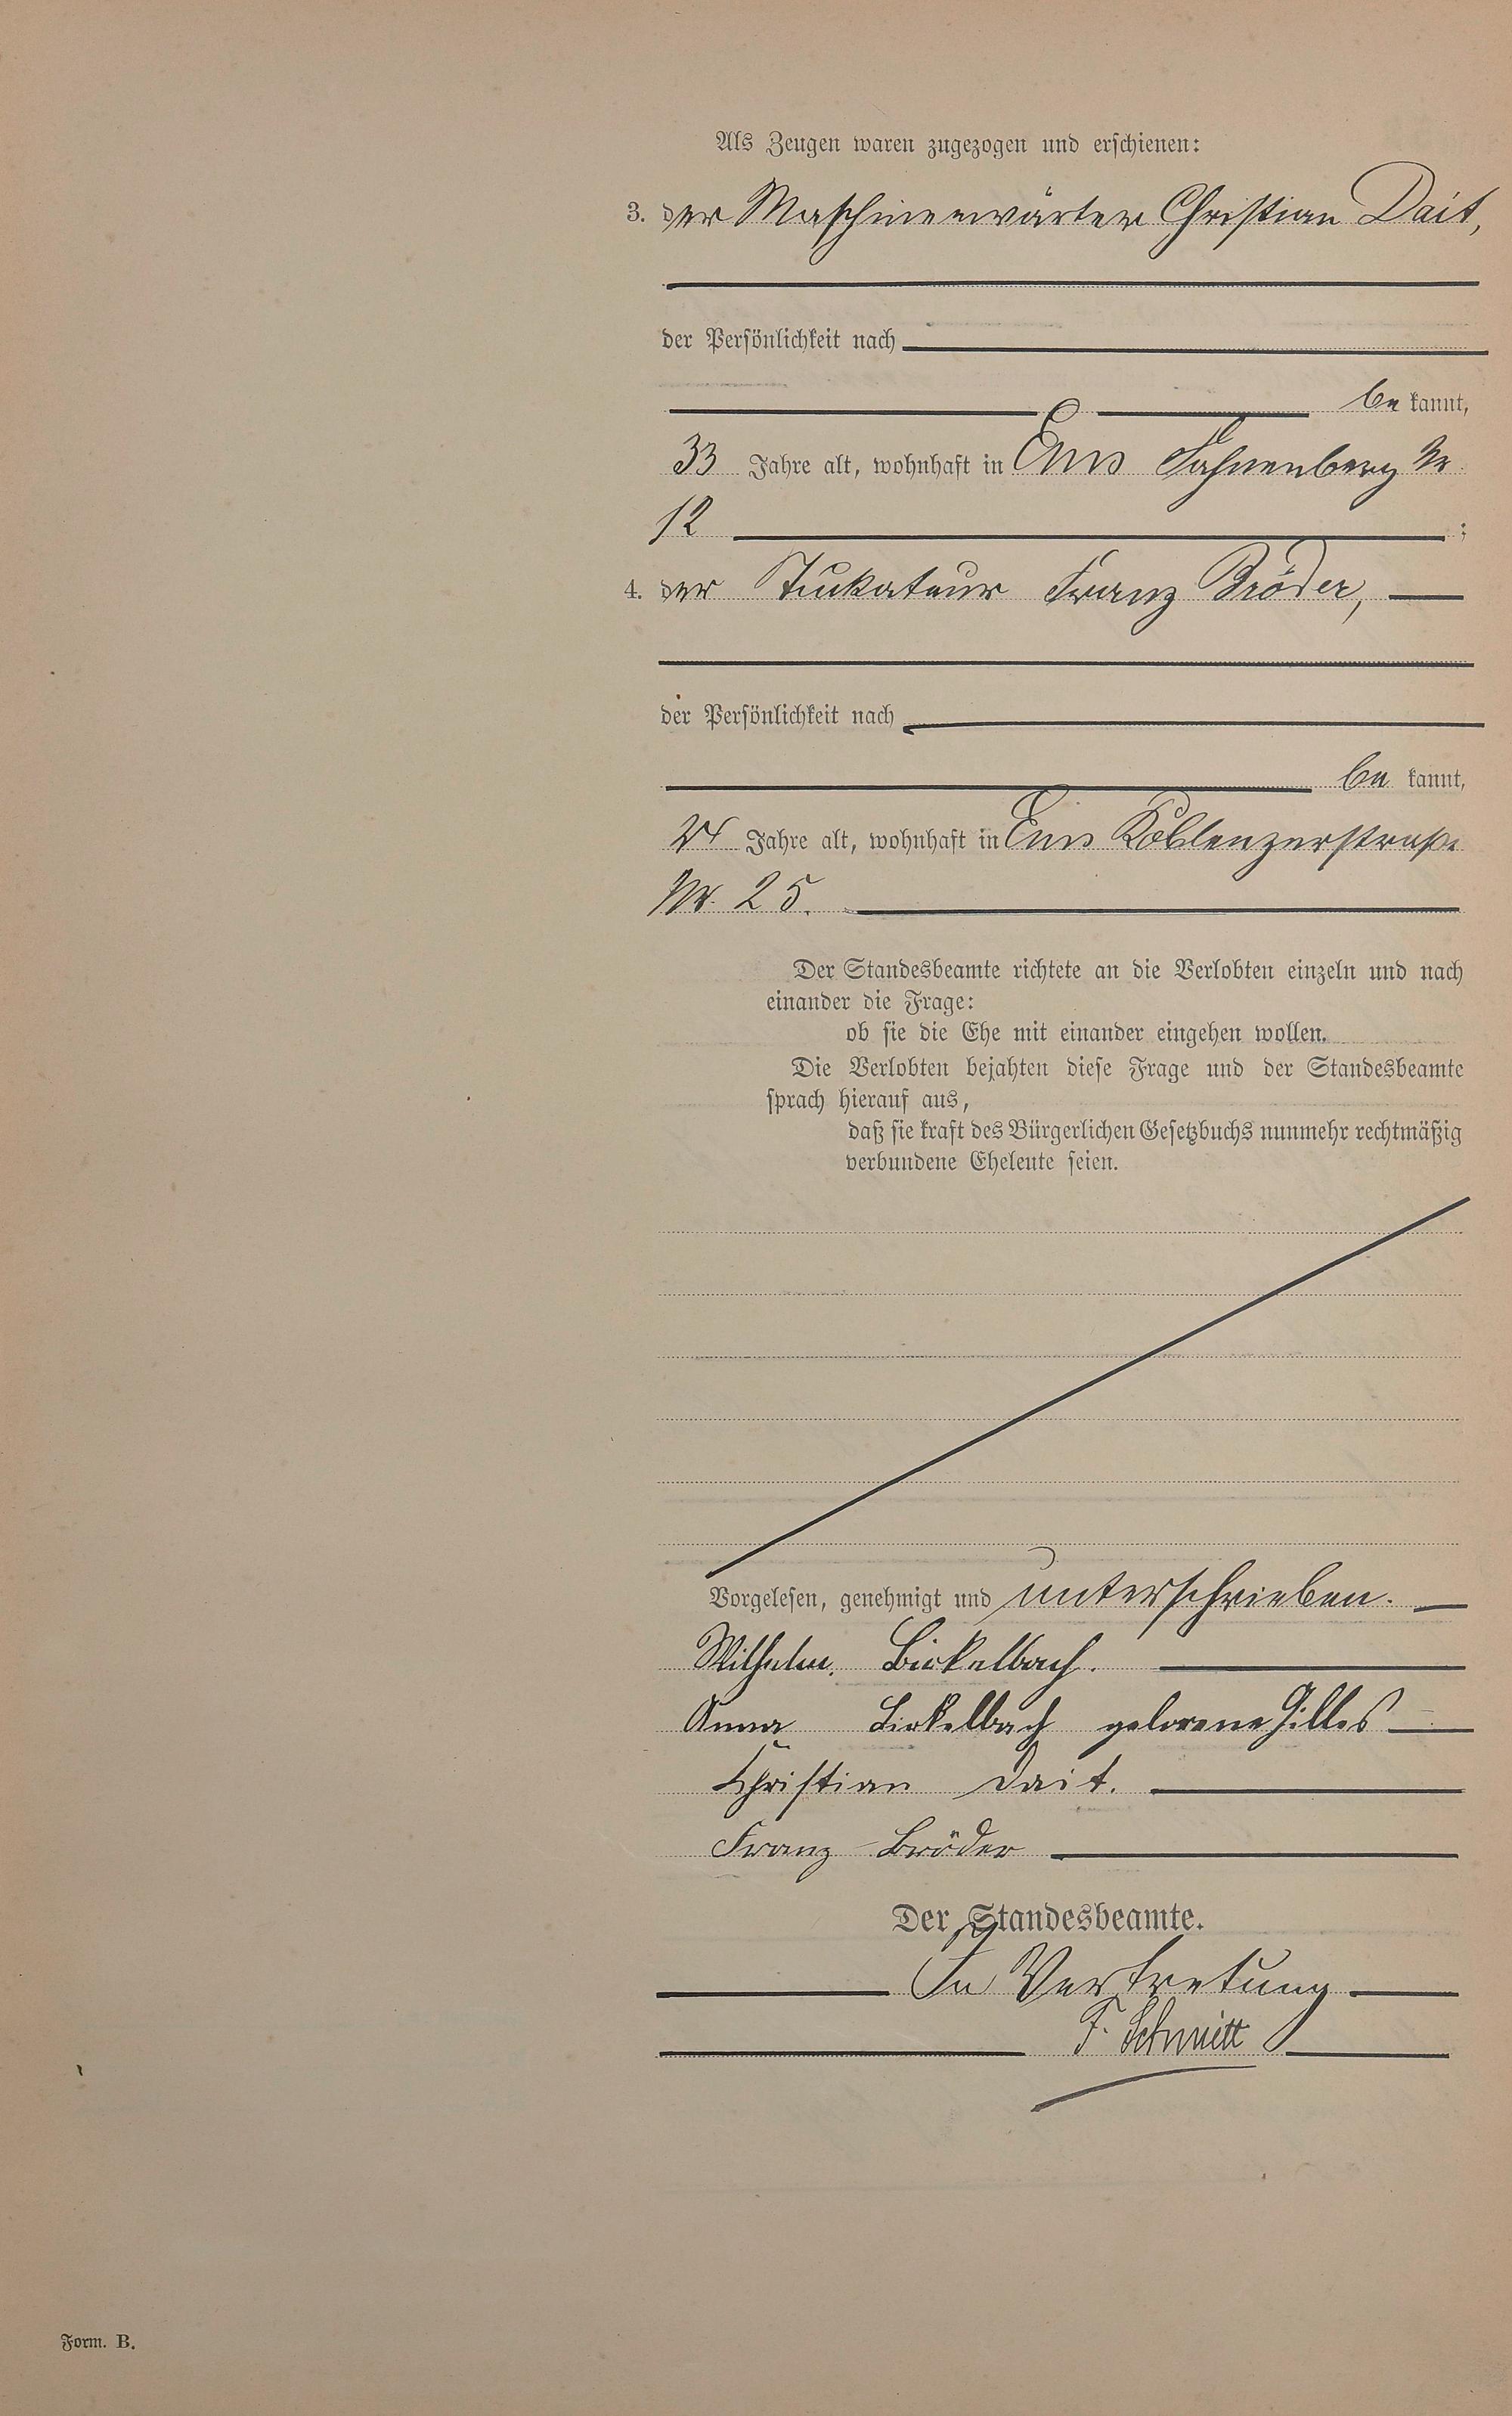 Als Zeugen waren zugezogen und erschienen:
3. der Maschinenwärter Christian Dait,
der Persönlichkeit nach
be kannt,
33 Jahre alt, wohnhaft in Ems Fahnenberg Nr
12 ;
4. der Stukateur Franz Bröder,
der Persönlichkeit nach
be kannt,
24 Jahre alt, wohnhaft in Ems Koblenzerstraße
Nr. 25.
Der Standesbeamte richtete an die Verlobten einzeln und nach
einander die Frage:
ob sie die Ehe mit einander eingehen wollen.
Die Verlobten bejahten diese Frage und der Standesbeamte
sprach hierauf aus,
daß sie kraft des Bürgerlichen Gesetzbuchs nunmehr rechtmäßig
verbundene Eheleute seien.
Vorgelesen, genehmigt und unterschrieben.
Wilhelm. Birkelbach.
Anna Birkelbach geborene Gilles
Christian Dait.
Franz Bröder
Der Standesbeamte.
In Vertretung
F. Schmitt
Form. B.